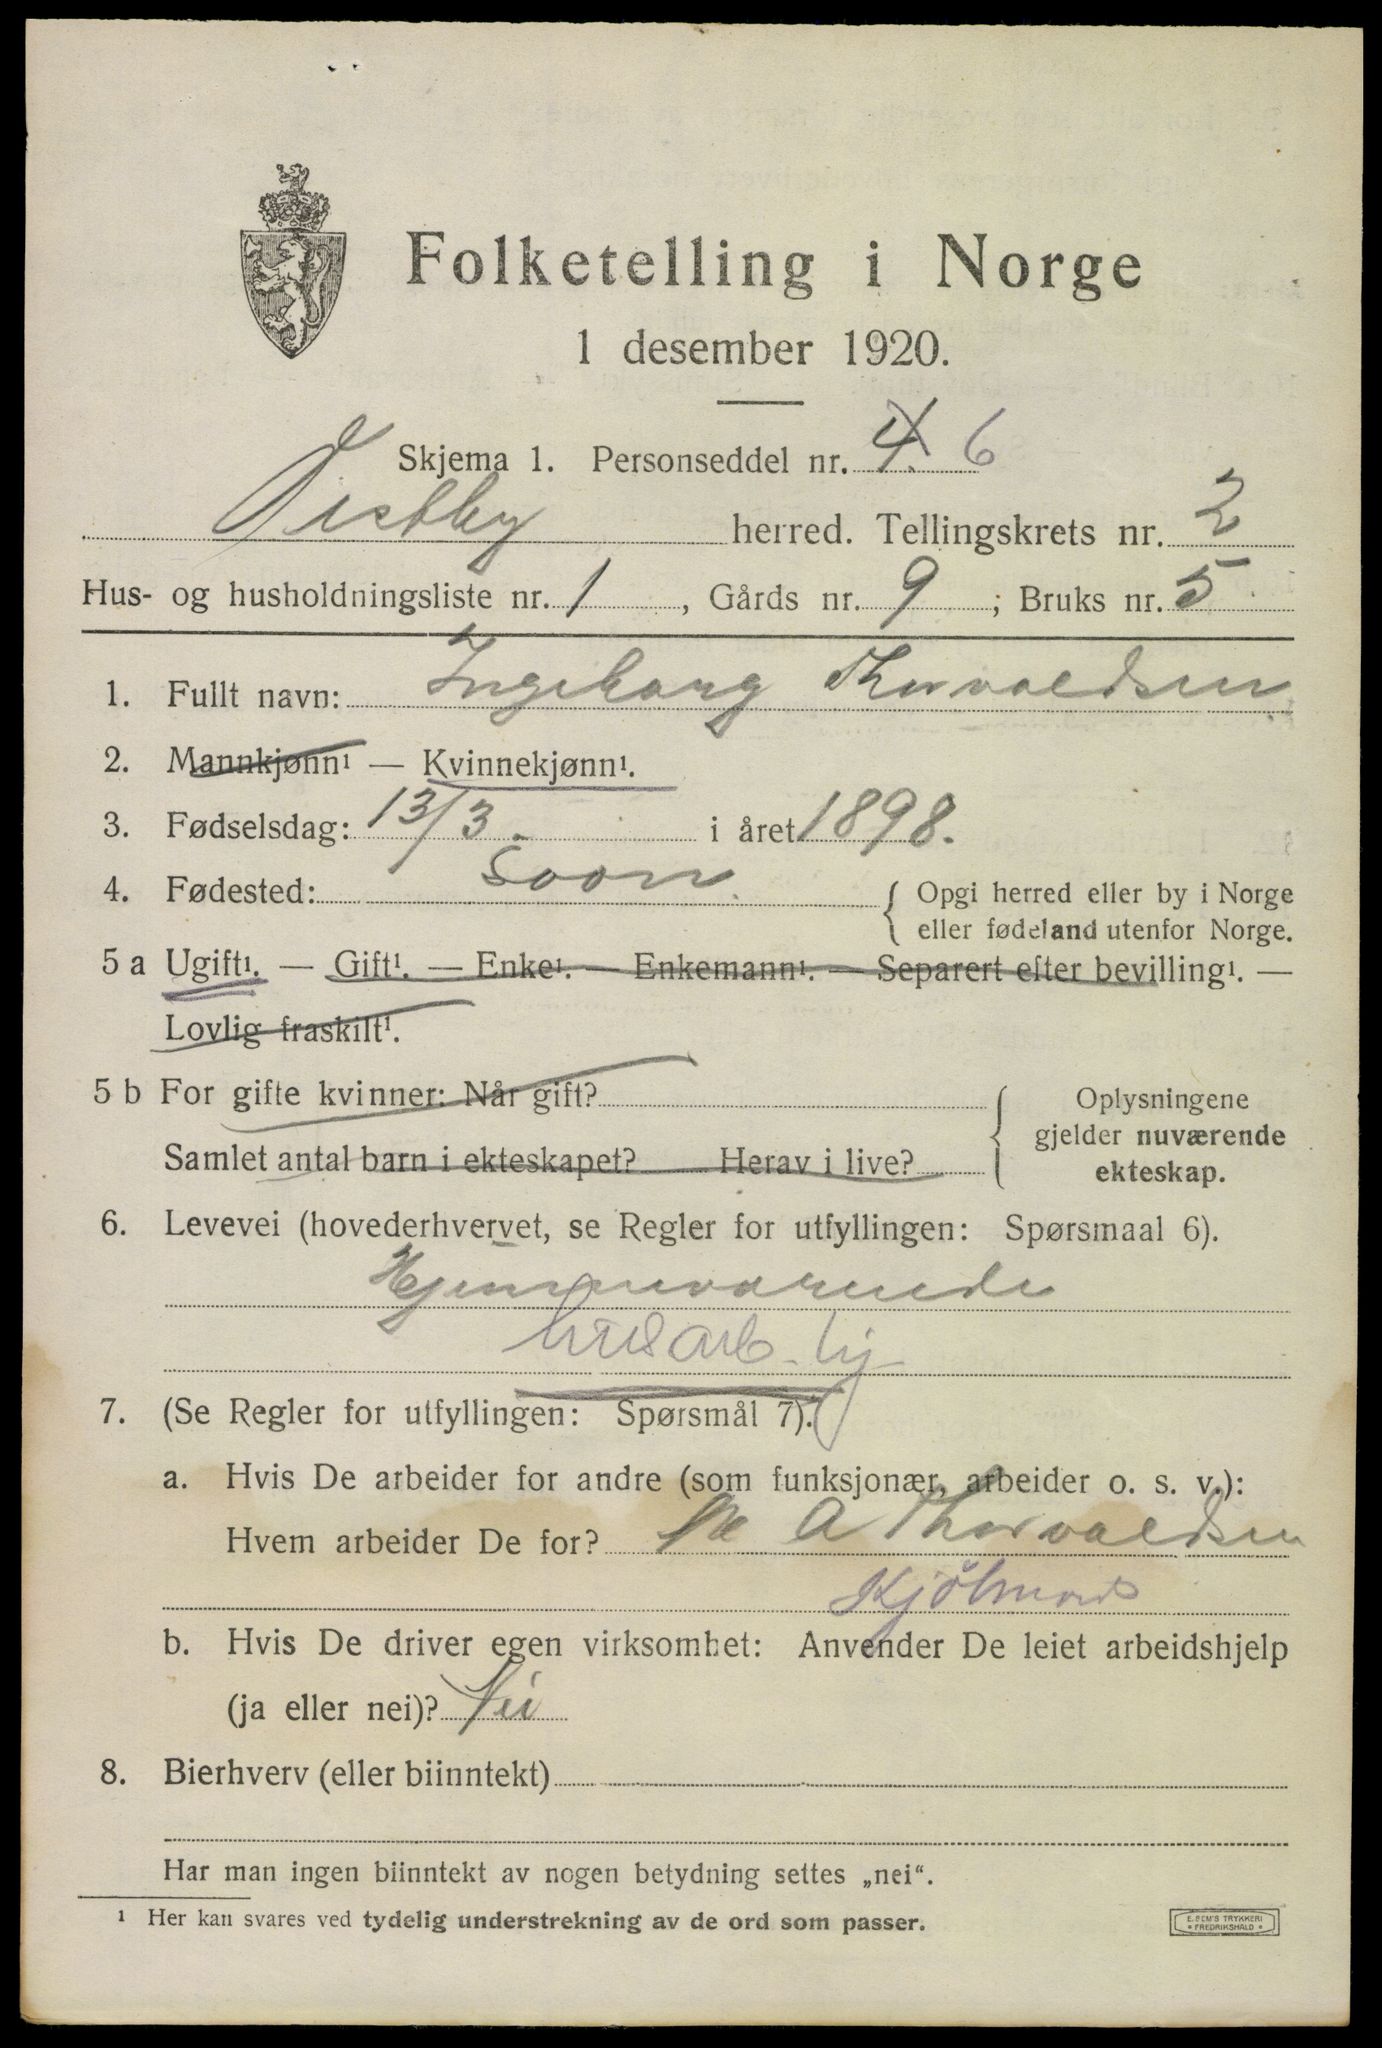 Folketelling i Norge
1 desember 1920.
Skjema 1. Personseddel nr. 4. 6
Vestby herred. Tellingskrets nr. 2
Hus- og husholdningsliste nr. 1, Gårds nr. 9; Bruks nr. 5
1. Fullt navn: Ingeborg Thorvaldsen
2. Mannkjønn¹ — Kvinnekjønn¹.
3. Fødselsdag: 13/3. i året 1898.
4. Fødested: Soon { Opgi herred eller by i Norge
eller fødeland utenfor Norge.
5 a Ugift¹. — Gift¹. — Enke¹. — Enkemann¹. — Separert efter bevilling¹. —
Lovlig fraskilt¹.
5 b For gifte kvinner: Når gift? { Oplysningene
gjelder nuværende
Samlet antal barn i ekteskapet? Herav i live?
ekteskap.
6. Levevei (hovederhvervet, se Regler for utfyllingen: Spørsmaal 6).
Hjemmeværende
husarb. hj
7. (Se Regler for utfyllingen: Spørsmål 7).
a. Hvis De arbeider for andre (som funksjonær, arbeider o. s. v.):
Hvem arbeider De for? A Thorvaldsen
Kjöbmand
b. Hvis De driver egen virksomhet: Anvender De leiet arbeidshjelp
(ja eller nei)? Nei
8. Bierhverv (eller biinntekt)
Har man ingen biinntekt av nogen betydning settes „nei“.
¹ Her kan svares ved tydelig understrekning av de ord som passer.
E. SEM'S TRYKKERI
* FREDRIKSHALD *